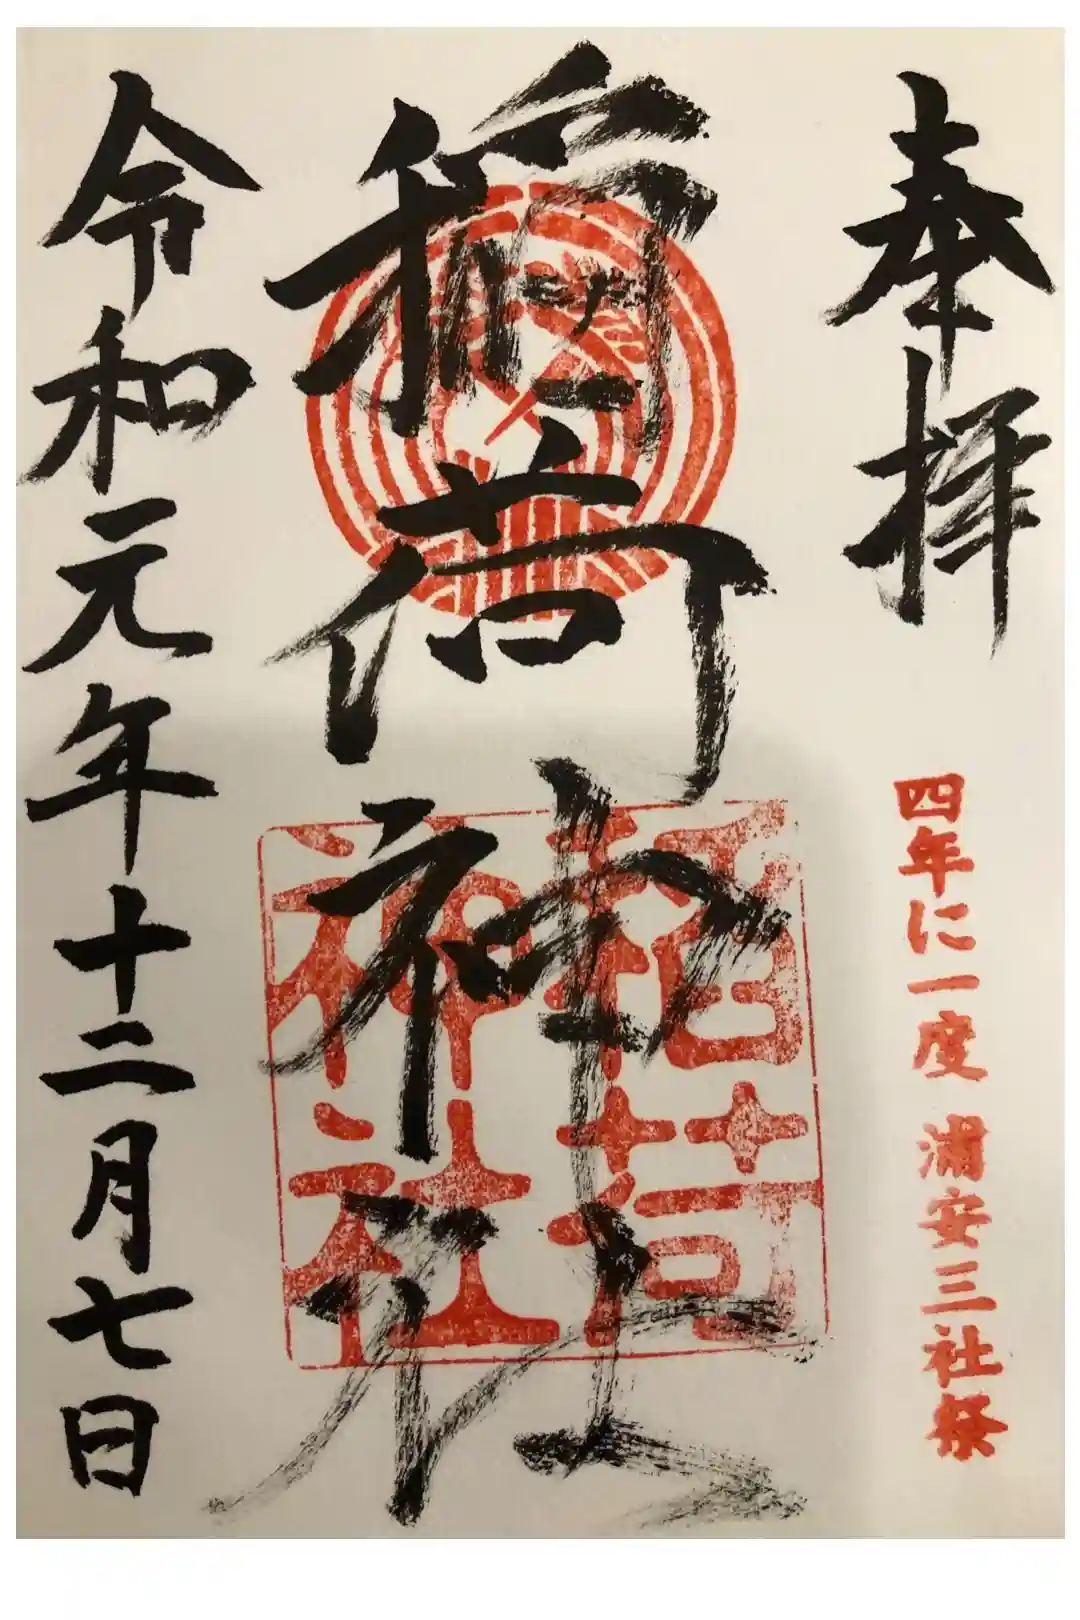 奉拝
四年に一度 浦安三社祭
稲荷神社
稲荷
神社
令和元年十二月七日